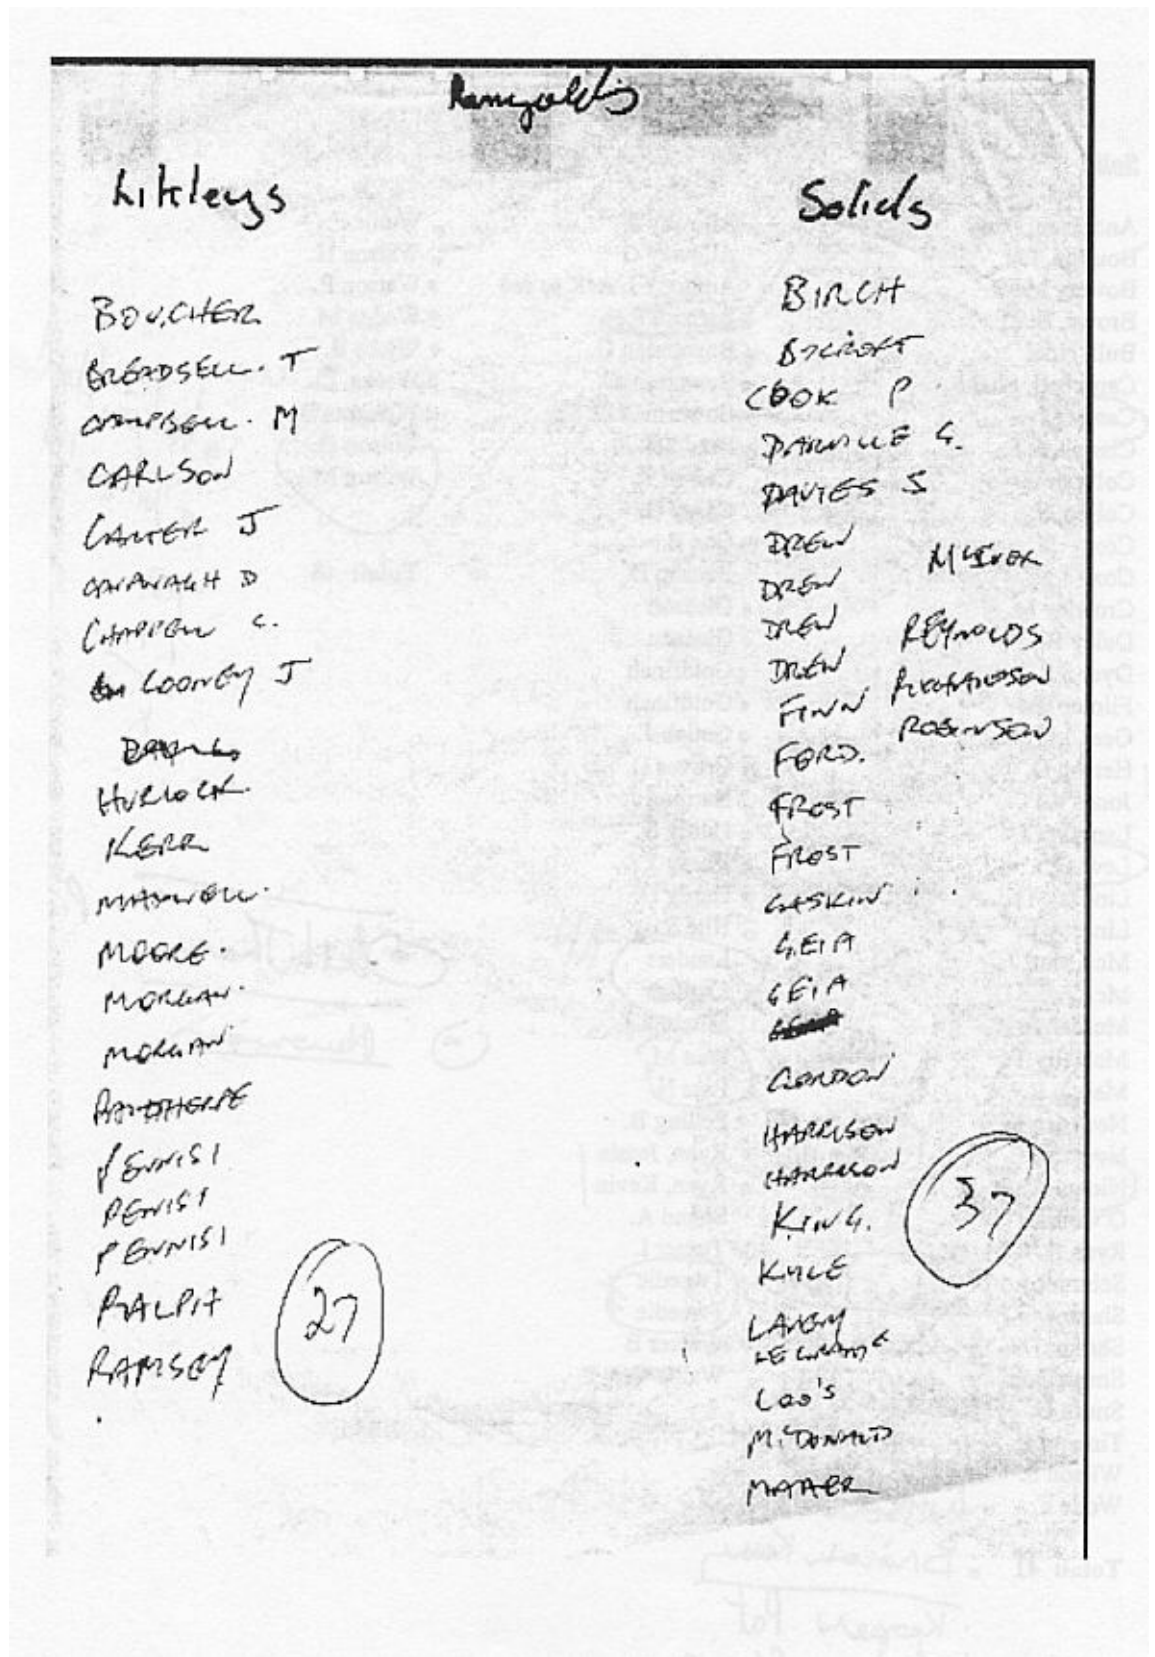 Likleys
BOUCHER
BREADSELL. T
CAMPBELL. M
CARLSON
CARTER J
CAVANAGH D
CHAPPELL C.
COONEY J
HURLOCK.
KERR
MAXWELL.
MOORE.
MORGAN.
MORGAN
PALETHORPE
PENNISI
PENISI
PENNISI
RALPH
RAMSEY
27
Solids
BIRCH
BYCROFT
COOK P
DARVILLE G.
DAVIES S
DREW
DREW
DREW
DREW
FINN
FORD.
FROST
FROST
GASKIN
GEIA
GEIA
GORDON
HARRISON
HARRISON
KING.
KYLE
LAHEY
LE GRAND
Loo's
McDONALD
MAHER
McIVER
REYNOLDS
RICHARDSON
ROBINSON
37